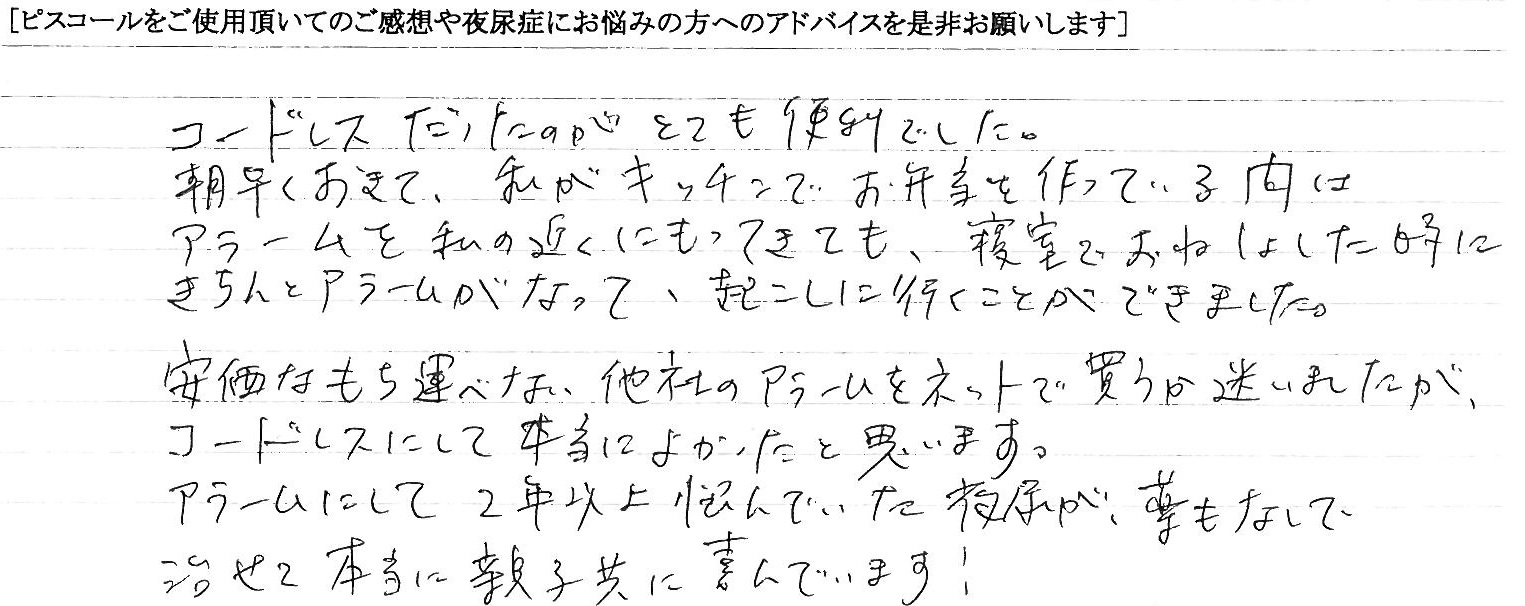 [ピスコールをご使用頂いてのご感想や夜尿症にお悩みの方へのアドバイスを是非お願いします]
コードレスだったのがとても便利でした。
朝早くおきて、私がキッチンでお弁当を作っている間は
アラームを私の近くにもってきても、寝室でおねしょした時に
きちんとアラームがなって、起こしに行くことができました。
安価なもち運べない他社のアラームをネットで買うか迷いましたが、
コードレスにして本当によかったと思います。
アラームにして2年以上悩んでいた夜尿が、薬もなしで
治せて本当に親子共に喜んでいます!